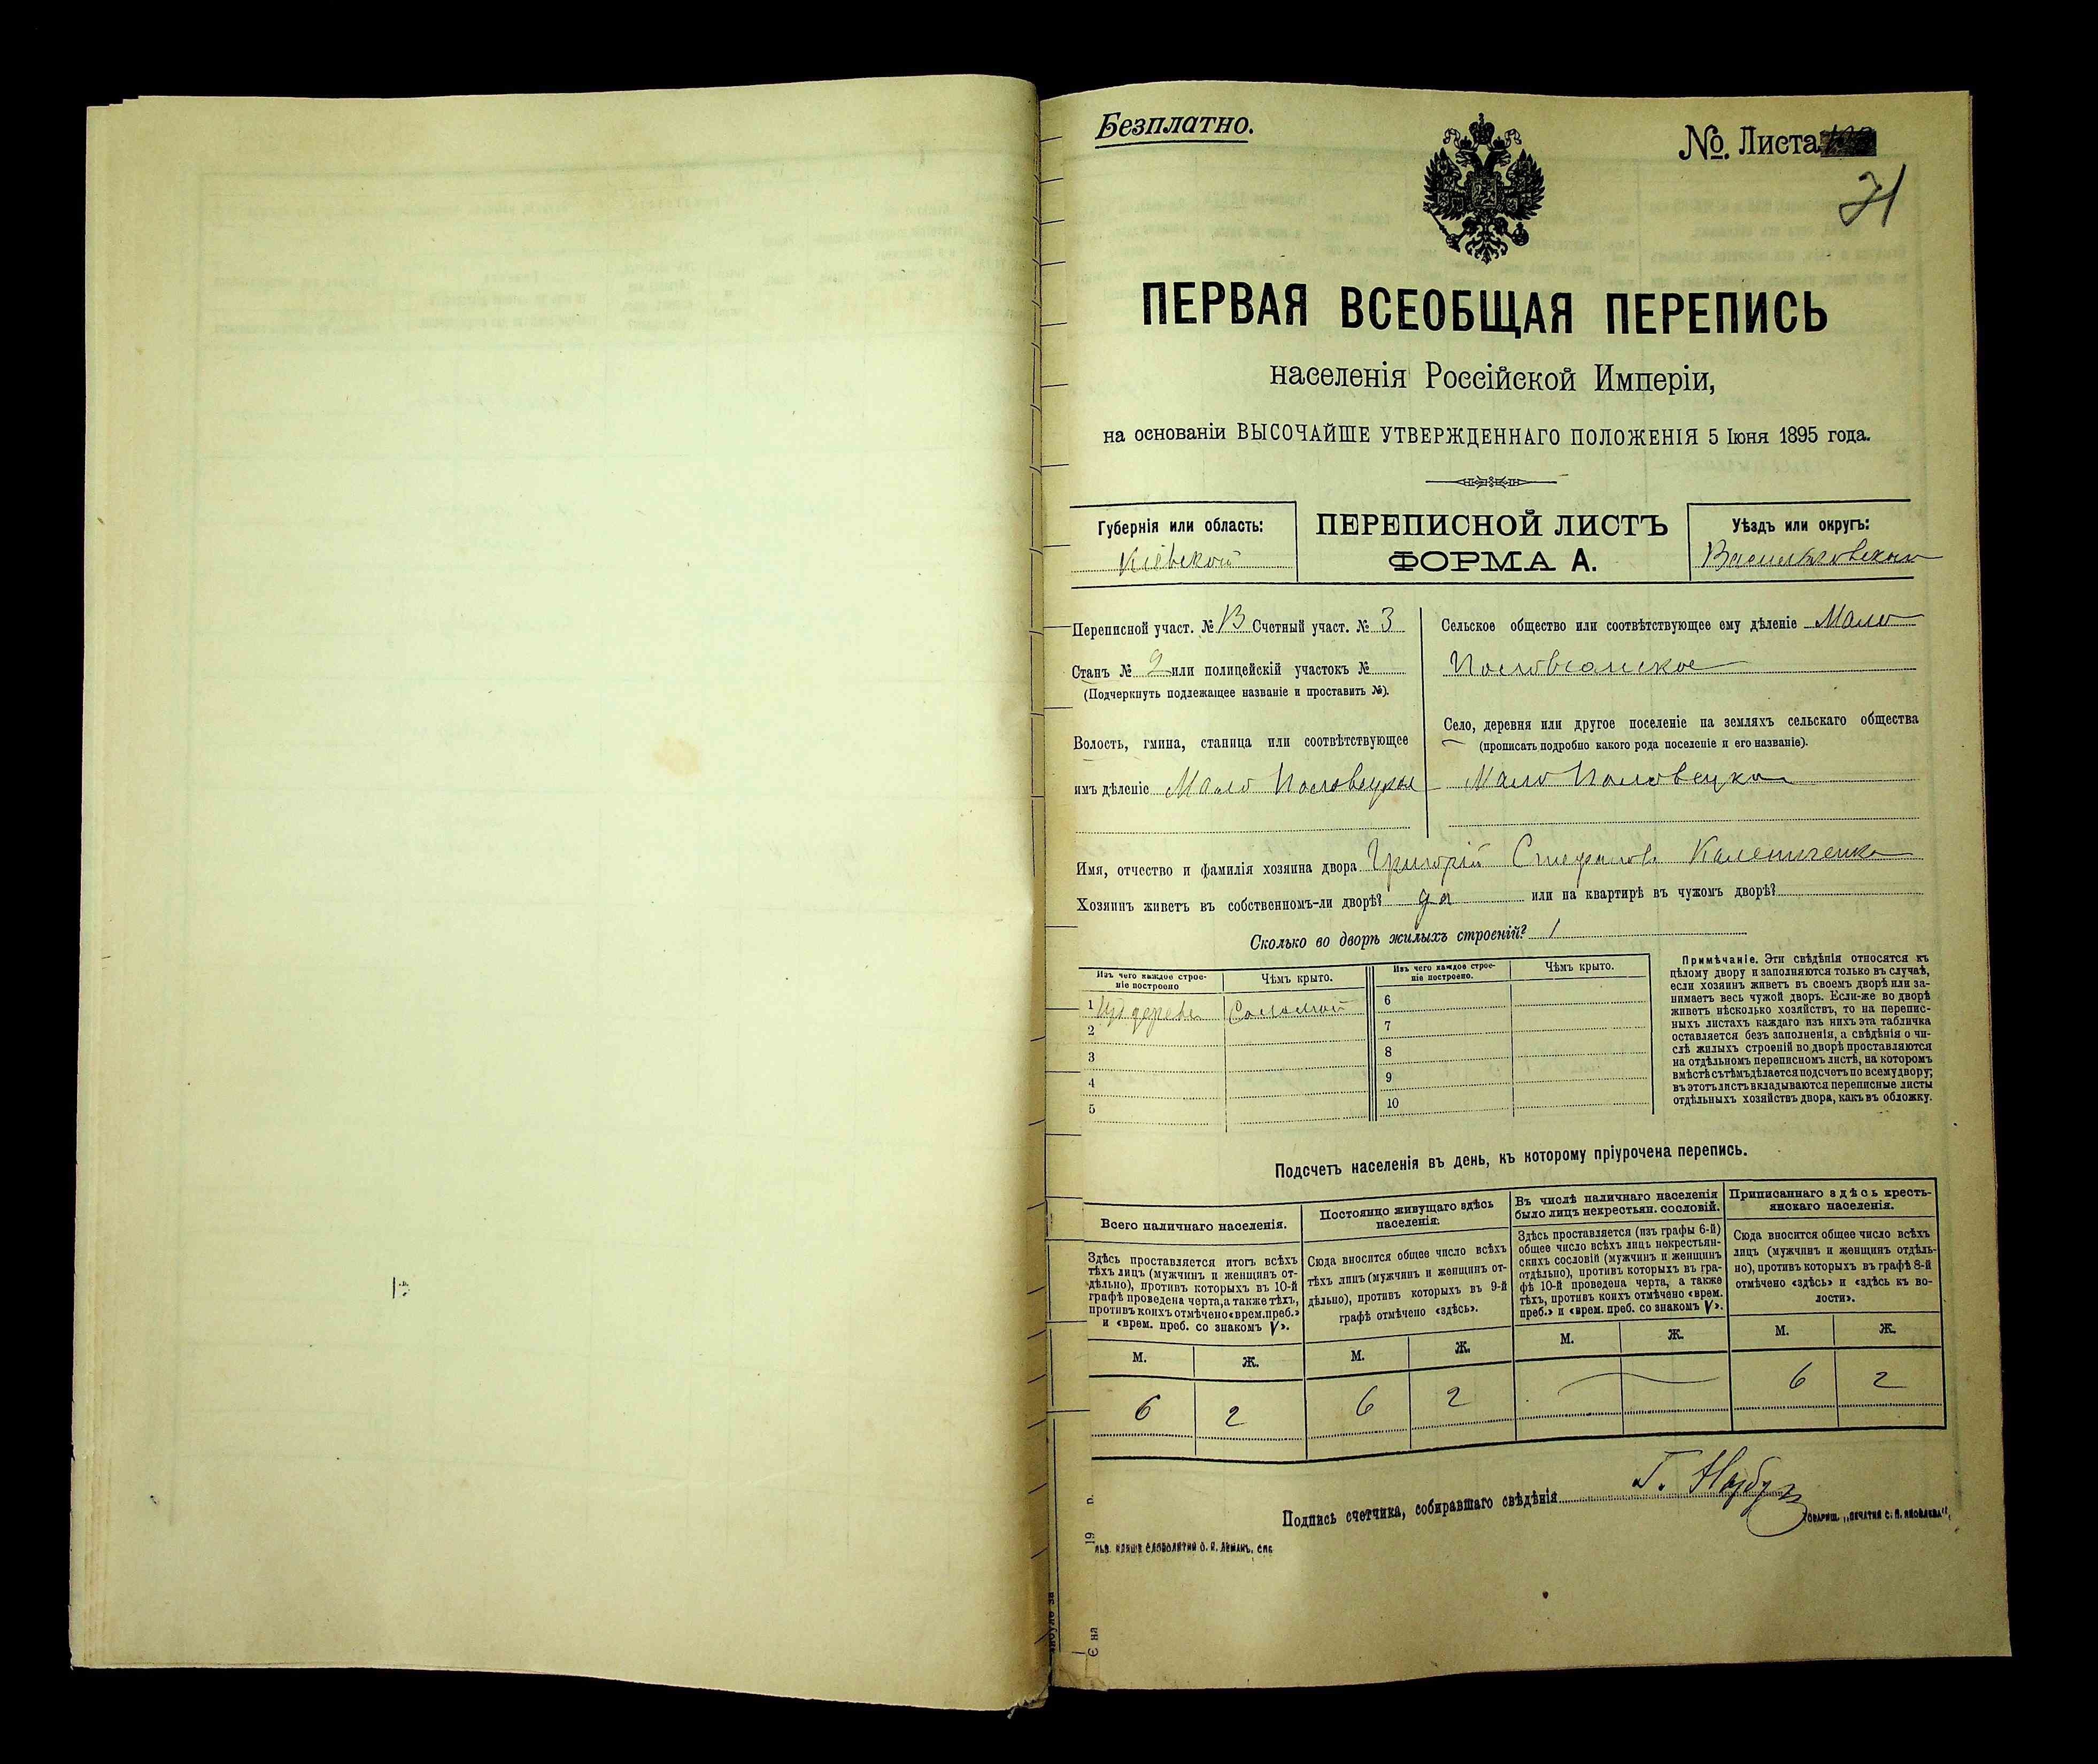 Безплатно.
№. Листа
71
ПЕРВАЯ ВСЕОБЩАЯ ПЕРЕПИСЬ
населенія Россійской Имперіи,
на основаніи ВЫСОЧАЙШЕ УТВЕРЖДЕННАГО ПОЛОЖЕНІЯ 5 Іюня 1895 года.
Губернія или область:
Кіевской
ПЕРЕПИСНОЙ ЛИСТЪ
ФОРМА А.
Уѣздъ или округъ:
Васильковскій
Переписной участ. № 13 Счетный участ. № 3
Станъ № 2 или полицейскій участокъ №
(Подчеркнуть подлежащее названіе и проставить №).
Волость, гмина, станица или соотвѣтствующее
имъ дѣленіе Мало Половецкое
Сельское общество или соотвѣтствующее ему дѣленіе Мало
Село, деревня или другое поселеніе на земляхъ сельскаго общества
(прописать подробно какого рода поселеніе и его названіе).
Мало Половецкое
Имя, отчество и фамилія хозяина двора Григорій Стефановъ
Хозяинъ живетъ въ собственномъ-ли дворѣ? да или на квартирѣ въ чужомъ дворѣ?
Сколько во дворѣ жилыхъ строеній? 1
Изъ чего каждое строе-
ніе построено
Чѣмъ крыто.
Изъ чего каждое строе-
ніе построено.
Чѣмъ крыто.
1 Изъ дерева Соломой
2
3
4
5
6
7
8
9
10
Примѣчаніе. Эти свѣдѣнія относятся къ
цѣлому двору и заполняются только въ случаѣ,
если хозяинъ живетъ въ своемъ дворѣ или за-
нимаетъ весь чужой дворъ. Если-же во дворѣ
живетъ нѣсколько хозяйствъ, то на перепис-
ныхъ листахъ каждаго изъ нихъ эта табличка
оставляется безъ заполненія, а свѣдѣнія о чи-
слѣ жилыхъ строеній во дворѣ проставляются
на отдѣльномъ переписномъ листѣ, на которомъ
вмѣстѣ съ тѣмъ дѣлается подсчетъ по всему двору;
въ этотъ листъ вкладываются переписные листы
отдѣльныхъ хозяйствъ двора, какъ въ обложку.
Подсчетъ населенія въ день, къ которому пріурочена перепись.
Всего наличнаго населенія.
Здѣсь проставляется итогъ всѣхъ
тѣхъ лицъ (мужчинъ и женщинъ от-
дѣльно), противъ которыхъ въ 10-й
графѣ проведена черта, а также тѣхъ,
противъ коихъ отмѣчено «врем. преб.»
и «врем. преб. со знакомъ V».
Постоянно живущаго здѣсь
населенія:
Сюда вносится общее число всѣхъ
тѣхъ лицъ (мужчинъ и женщинъ от-
дѣльно), противъ которыхъ въ 9-й
графѣ отмѣчено «здѣсь».
Въ числѣ наличнаго населенія
было лицъ некрестьян. сословій.
Здѣсь проставляется (изъ графы 6-й)
общее число всѣхъ лицъ некрестьян-
скихъ сословій (мужчинъ и женщинъ
отдѣльно), противъ которыхъ въ гра-
фѣ 10-й проведена черта, а также
тѣхъ, противъ коихъ отмѣчено «врем.
преб.» и «врем. преб. со знакомъ V».
Приписаннаго здѣсь кресть-
янскаго населенія.
Сюда вносится общее число всѣхъ
лицъ (мужчинъ и женщинъ отдѣль-
но), противъ которыхъ въ графѣ 8-й
отмѣчено «здѣсь» и «здѣсь къ во-
лости».
М. Ж. М. Ж. М. Ж. М. Ж.
6 2 6 2 6 2
Подпись счетчика, собиравшаго свѣдѣнія Г.